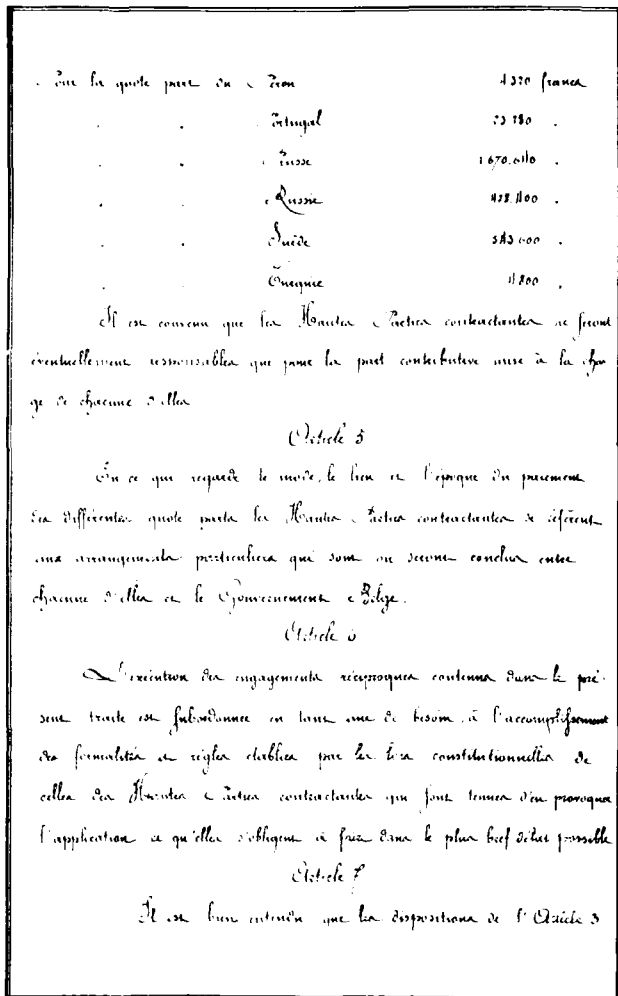 Pour la quote part du Pérou 4320 francs
. . Portugal 23.280 .
. . Prusse 1.670.640 .
. . Russie 428.400 .
. . Suède 543.600 .
. . Turquie 4800 .
Il est convenu que les Hautes Parties contractantes ne seront
éventuellement responsables que pour la part contributive mise à la char
ge de chacune d'elles
Article 5
En ce qui regarde le mode, le lieu et l'époque du paiement
des différentes quote parts les Hautes Parties contractantes se réfèrent
aux arrangements particuliers qui sont ou seront conclus entre
chacune d'elles et le Gouvernement Belge.
Article 6
L'exécution des engagements réciproques contenus dans le pré-
sent traité est subordonnée en tant que de besoin, à l'accomplissement
des formalités et règles établies par les lois constitutionnelles de
celles des Hautes Parties contractantes qui sont tenues d'en provoquer
l'application ce qu'elles s'obligent à faire dans le plus bref délai possible
Article 7
Il est bien entendu que les dispositions de l'Article 3